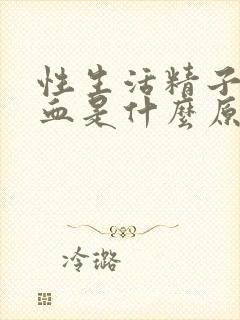 性生活精子
血是什麼原
冷璐